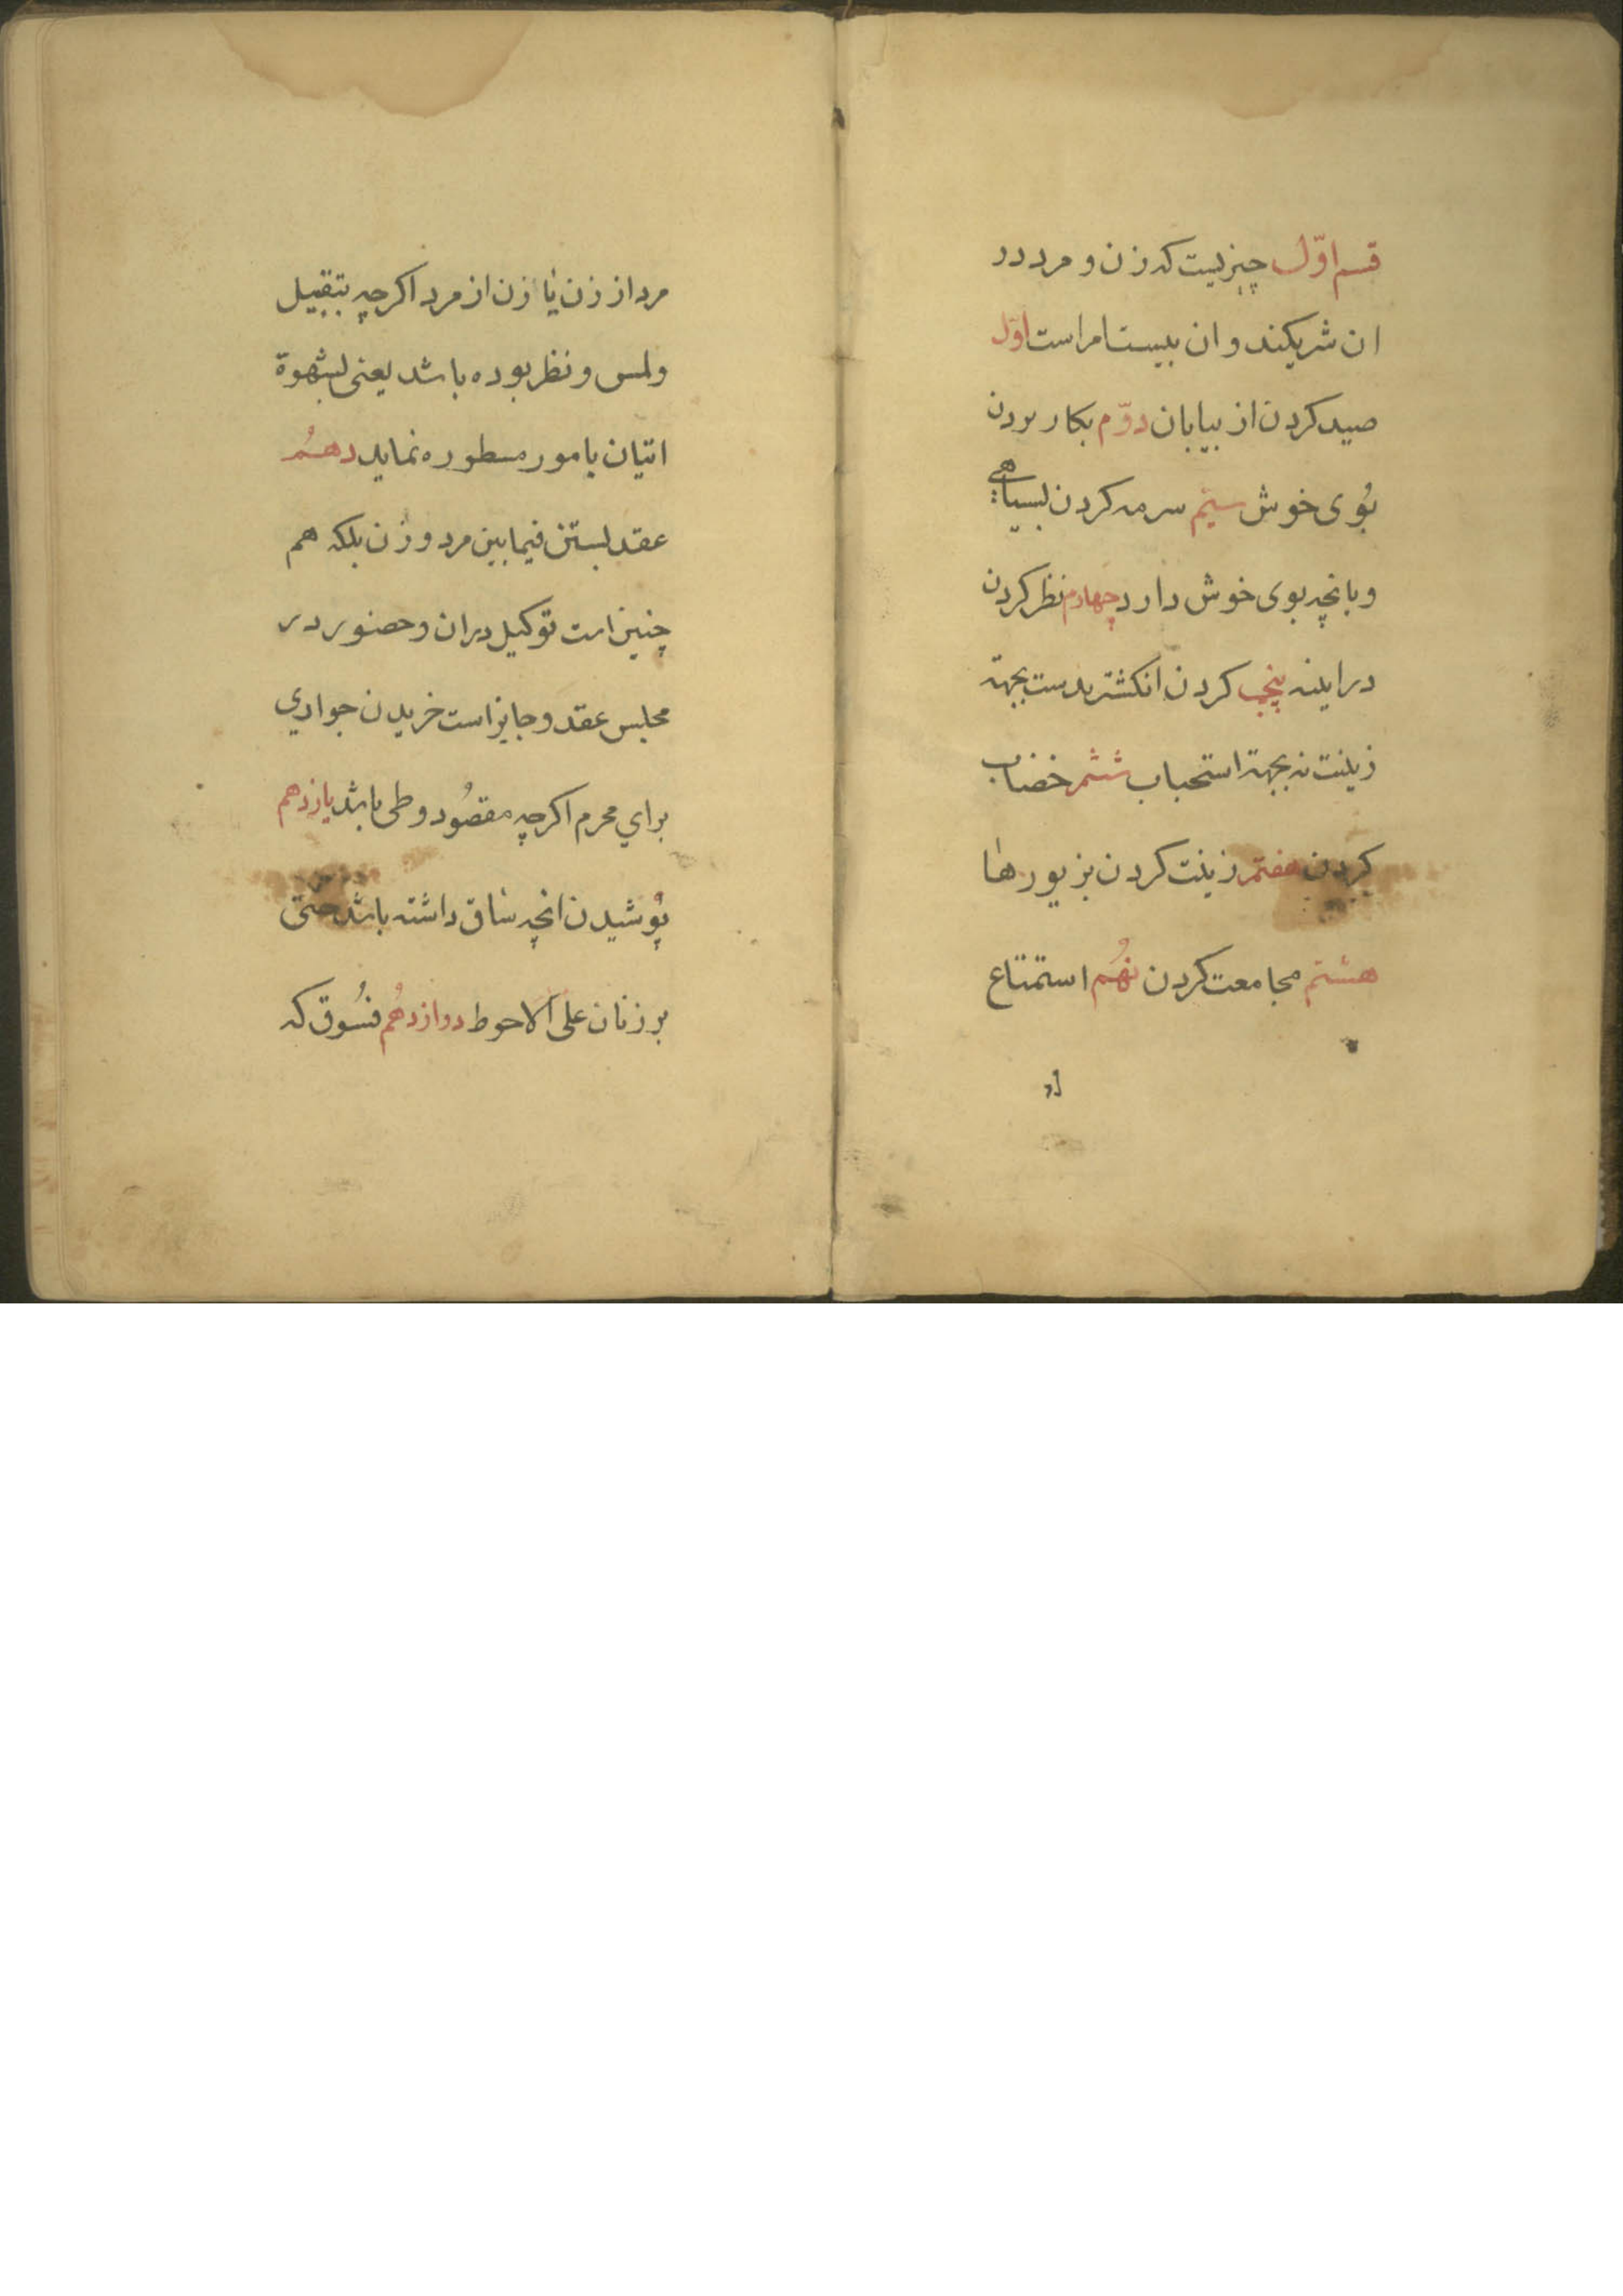 قسم اوّل چیزیست که زن و مرد در
ان شریکند و ان بیست امر است اوّل
صید کردن از بیابان دوّم بکار بردن
بُوی خوش سیّم سرمه کردن بسیاهی
و بانچه بوی خوش دارد چهارم نظر کردن
در اینه پنجم کردن انکشتر بدست بجهة
زینت نه بجهة استحباب ششم خضاب
کردن هفتم زینت کردن بزیورها
هشتم مجامعت کردن نهُم استمتاع
مرد از زن یا زن از مرد اکرچه بتقبیل
و لمس و نظر بوده باشد یعنی بشهوة
اتیان بامور مسطوره نماید دهُم
عقد بستن فیما بین مرد و زن بلکه هم
چنین است توکیل دران و حضور در
مجلس عقد و جایز است خریدن جواری
برای محرم اکرچه مقصُود وطی باشد یازدهم
پُوشیدن انچه ساق داشته باشد حتی
بر زنان علی الاحوط دوازدهُم فسُوق که